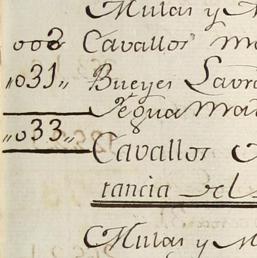 Mulas y M
002 Cavallos Ma
"031" Bueyes Lavra
Yegua Ma
"033" Cavallos
tancia del
Mulas y M